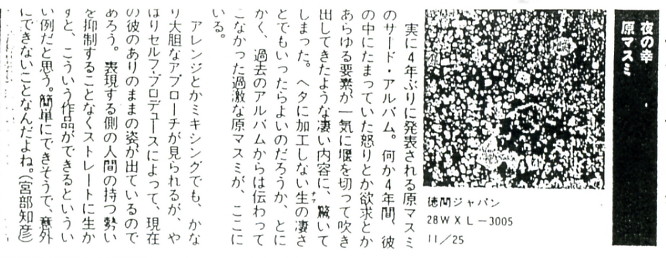 夜の幸
原マスミ
徳間ジャパン
28WXL－3005
11／25
　実に4年ぶりに発表される原マスミ
のサード・アルバム。何か4年間、彼
の中にたまっていた怒りとか欲求とか
あらゆる要素が一気に堰を切って吹き
出してきたような凄い内容に、驚いて
しまった。ヘタに加工しない生の凄さ
とでもいったらよいのだろうか、とに
かく、過去のアルバムからは伝わって
こなかった過激な原マスミが、ここに
いる。
　アレンジとかミキシングでも、かな
り大胆なアプローチが見られるが、や
はりセルフ・プロデュースによって、現在
の彼のありのままの姿が出ているので
あろう。表現する側の人間の持つ勢い
を抑制することなくストレートに生か
すと、こういう作品ができるといい
い例だと思う。簡単にできそうで、意外
にできないことなんだよね。（宮部知彦）